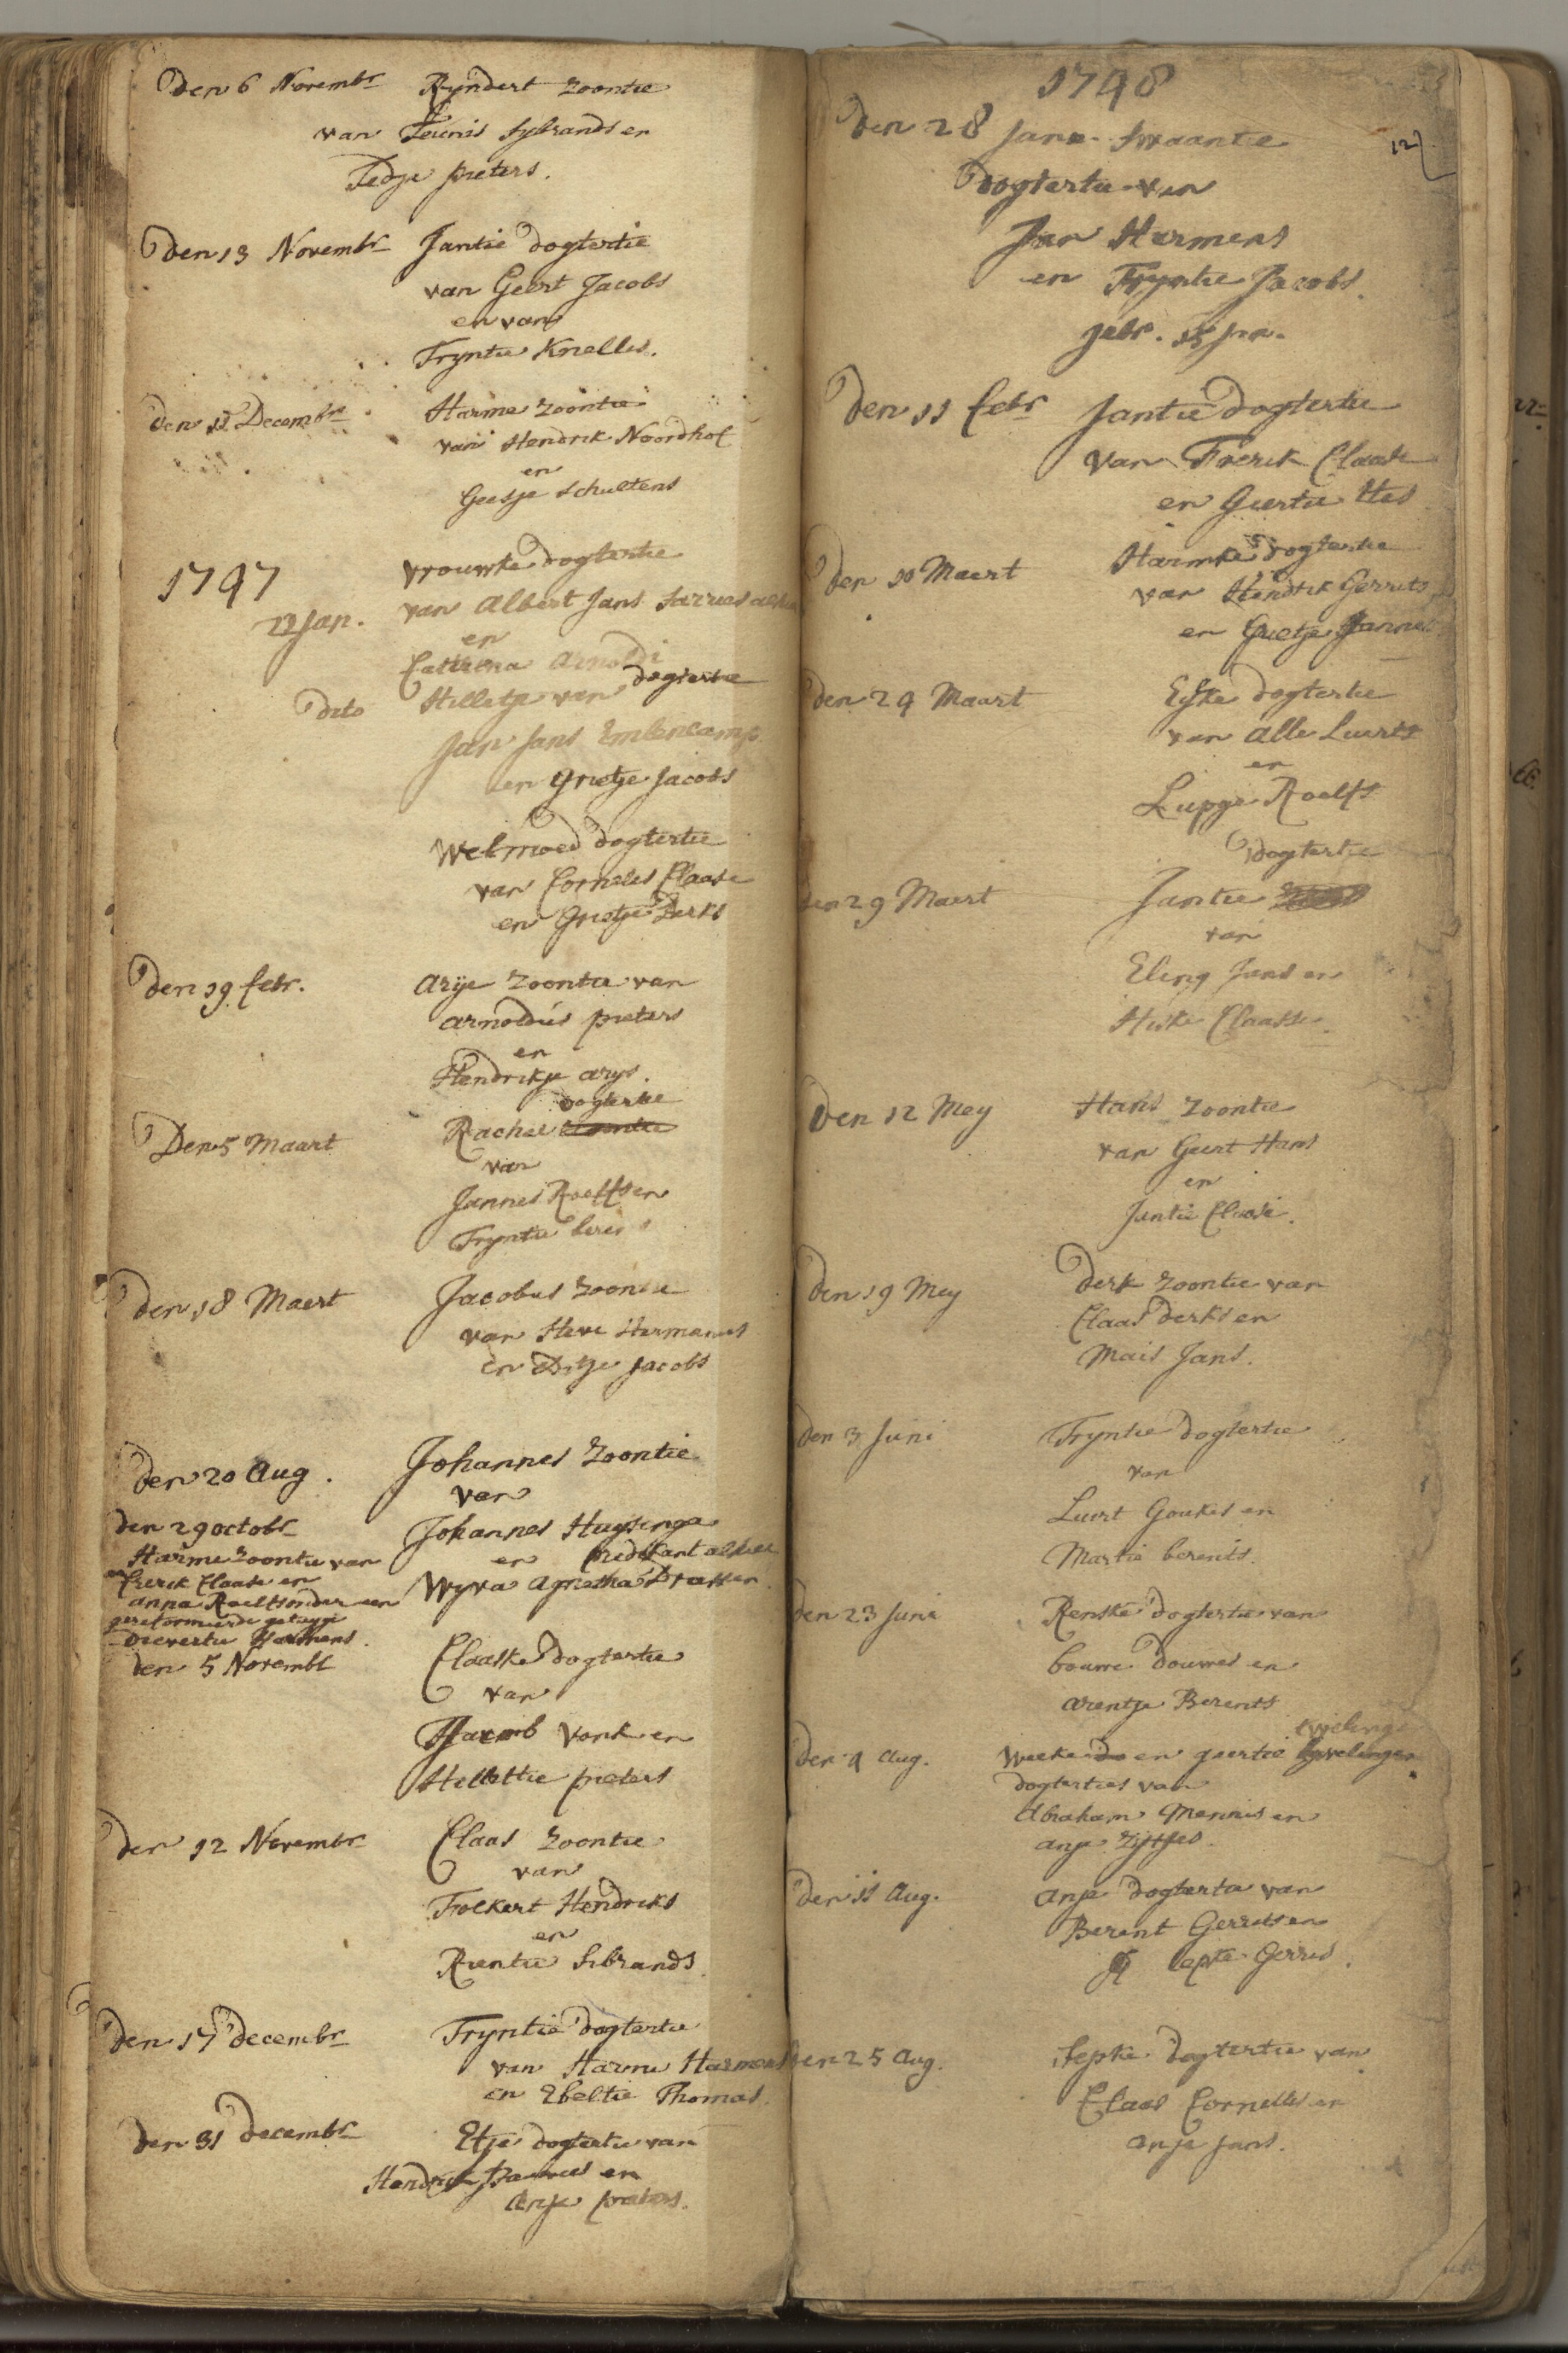 den 6 Novembr Ryndert zoontie
van Teunis Sybrands en
Fedje pieters.
den 13 Novembr Jantie dogtertie
van Geert Jacobs
en van
Tryntie Knelles.
den 11 Decembr Harme zoontie
van Hendrik Noordhof
en
Geesje Schultens
1797
22 Jan. vrouwke dogtertie
van Albert Jans
en
Catirina Arnoldi
dogtertie
dito Hilletje van
Jan Jans Emlencamp
en Grietje Jacobs
Welmoed dogtertie
van Cornelis Claase
en Grietje Derks
den 19 febr. Arije zoontie van
Arnoldus pieters
en
Hendrikje arys.
dogtertie
Den 5 Maart Rachel zoontie
van
Jannes Roelfs en
Tryntie
den 18 Maert Jacobus zoontie
van Steve Hermannes
en Jacobs
den 20 Aug. Johannes zoontie
van
Johannes Huysinga
en predikant alhier
Wyva Agnetha
den 29 octobr
Harme zoontie van
Frerik Claase en
anna Roelfs onder een
gereformeerde getuyge
Dievertie Harmens.
den 5 Novembr Claaske dogtertie
van
Jacob Vonk en
Hillettie pieters
den 12 Novembr Claas zoontie
van
Folkert Hendriks
en
Rientie Sibrands.
den 17 decembr Tryntie dogtertie
van Harme Harmens
en Ebeltie Thomas.
den 31 decembr Etje dogtertie van
Hendrik en
Anje pieters.
1798
den 28 Jan. Swaantie
12
dogtertie van
Jan Harmens
en Tryntie Jacobs.
gebr. 15 jan.
den 11 febr Jantie dogtertie
van Frerik Claase
en Geertie Ites
den 10 Maert Harmke dogtertie
van Hendrik Gerrits
en Grietje Jannes
den 24 Maart Efke dogtertie
van Alle Luerts
en
Lupge Roelfs
dogtertie
den 29 Maert Jantie
van
Eling Jans en
Hiske Claasse.
den 12 Mey Hans zoontie
van Geert Hans
en
Jantie Claase.
den 19 Mey Derk zoontie van
Claas Derks en
Mais Jans.
den 3 Juni Tryntie dogtertie
van
Luert Goukes en
Martie berents.
den 23 Juni Renske dogtertie van
bouwe douwes en
arentje Berents
twelings
den 9 Aug. Weeke do en geertie twelingen
dogterties van
Abraham Mennis en
anje
den 11 Aug. Anje dogtertie van
Berent Gerrits en
Gerrits.
den 25 Aug. Jepke dogtertie van
Claas Cornelles en
Anje Jans.